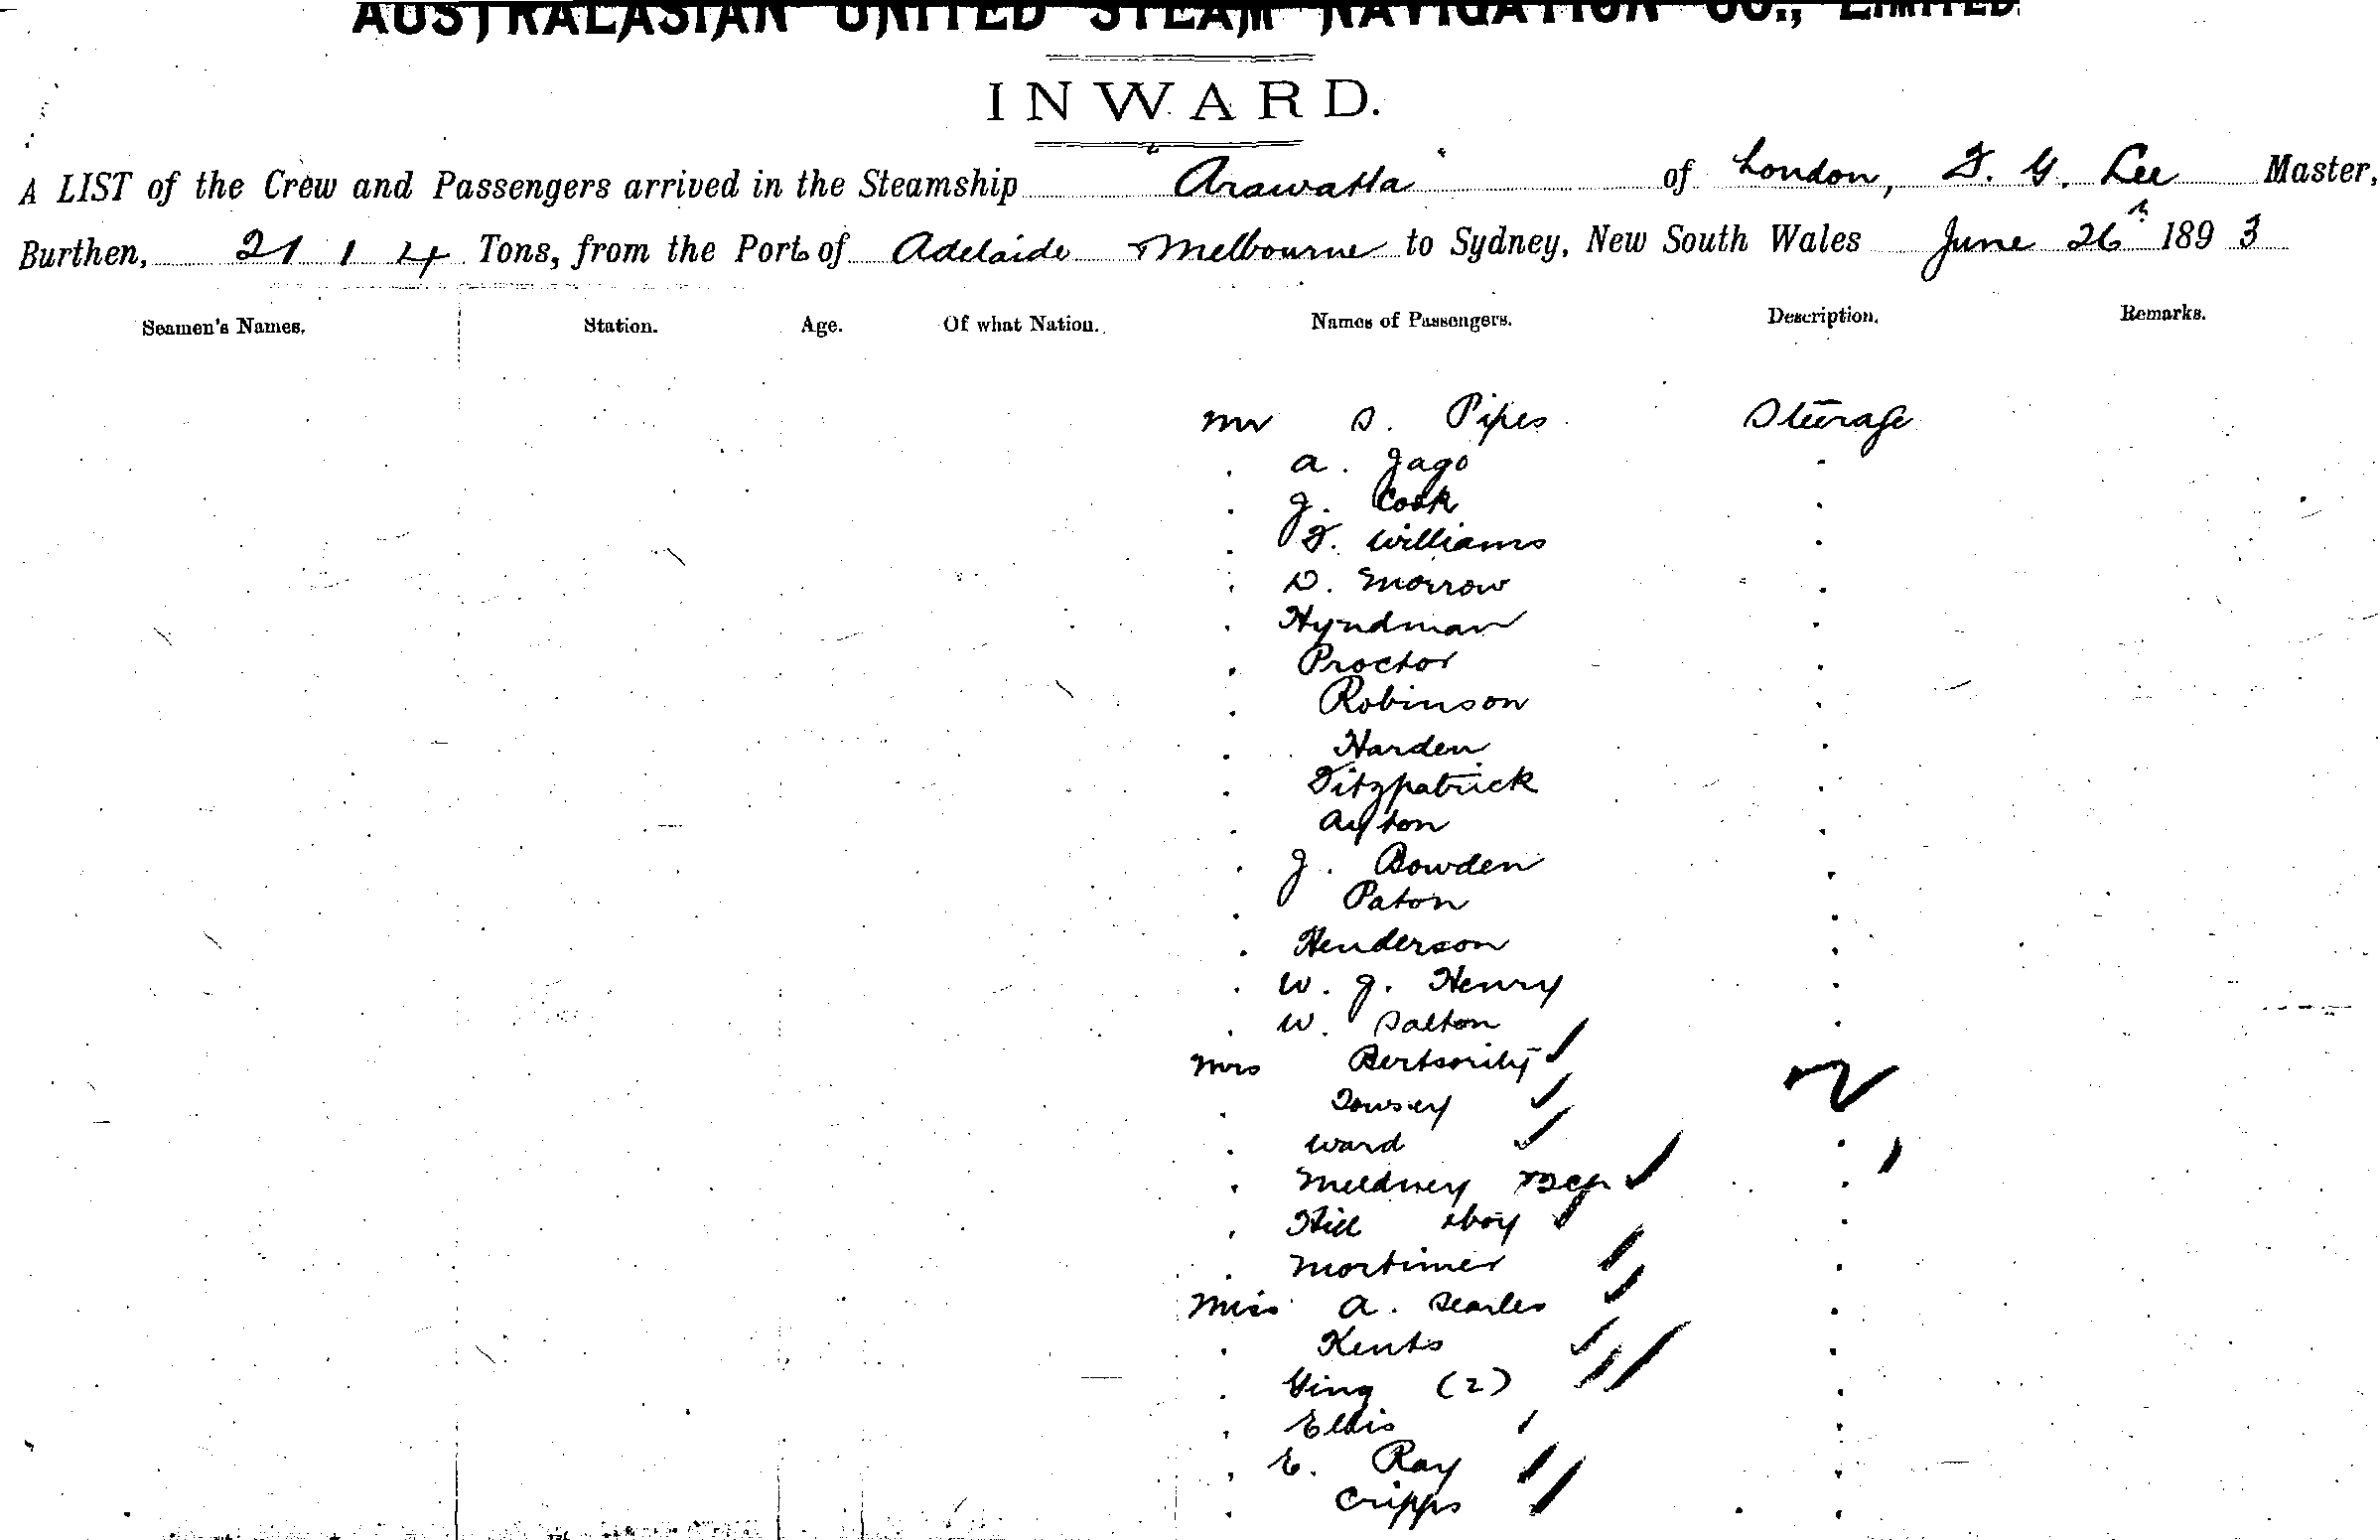 AUSTRALASIAN UNITED STEAM NAVIGATION CO., LIMITED.
INWARD.
A LIST of the Crew and Passengers arrived in the Steamship "Arawatta" of London, F. G. Lee Master,
Burthen, 2114 Tons, from the Port of Adelaide & Melbourne to Sydney, New South Wales June 26th 1893
Seamen's Names. Station. Age. Of what Nation. Names of Passengers. Description. Remarks.
Mr S. Pipes Steerage
. A. Jago .
. J. Cook .
. F. Williams .
. D. Morrow .
. Hyndman .
. Proctor .
. Robinson .
. Harden .
. Fitzpatrick .
. Ayton .
. J. Bowden .
. Paton .
. Henderson .
. W. J. Henry .
. W. Salton .
Mrs
. Towsey
. Ward .
. .
. Hill & boy .
. Mortimer .
Miss A. Searles .
. Kents .
. Ging (2) .
. Ellis .
. E. Ray .
. Cripps .